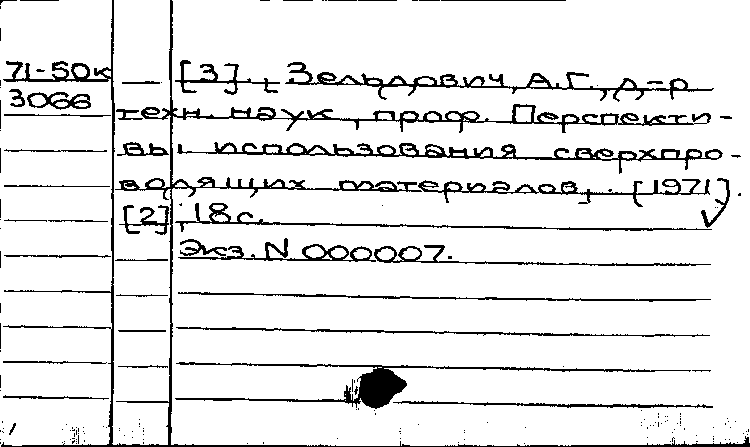 71-50к — [3]. [ Зельдович, А.Г., д-р
3066 техн. наук, проф. Перспекти-
вы использования сверхпро-
водящих материалов]. [1971].
[2], 18 с.
Экз. N 000007.